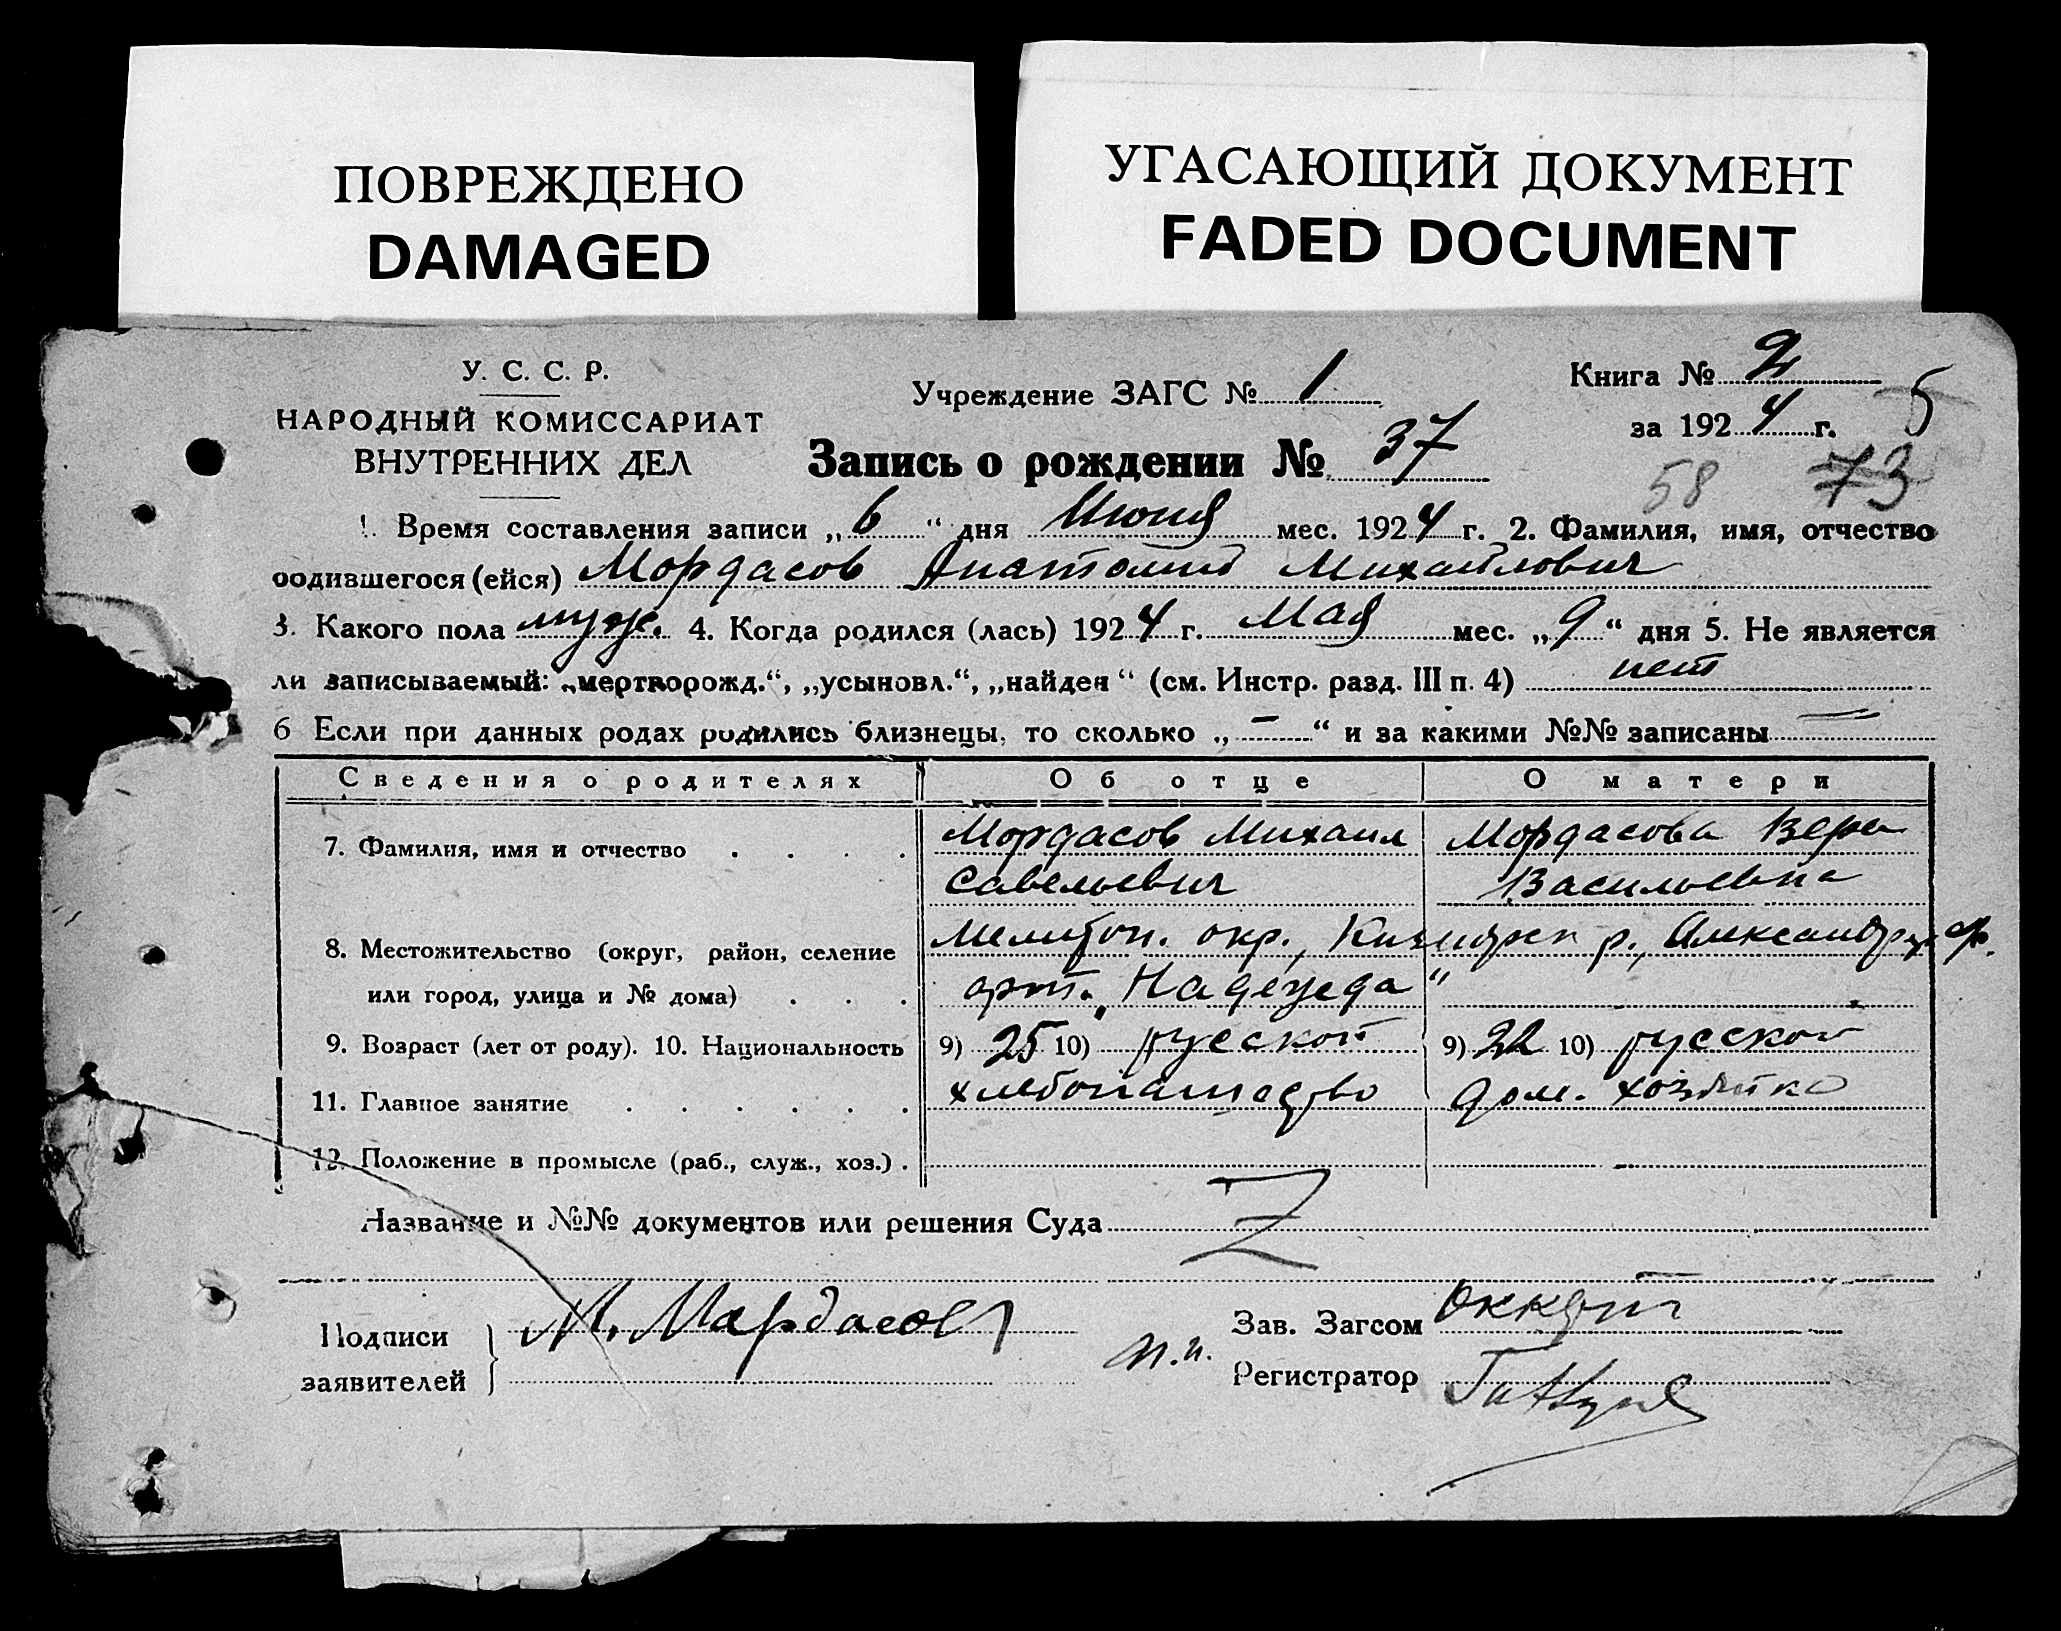 ПОВРЕЖДЕНО
DAMAGED
УГАСАЮЩИЙ ДОКУМЕНТ
FADED DOCUMENT
У. С. С. Р.
НАРОДНЫЙ КОМИССАРИАТ
ВНУТРЕННИХ ДЕЛ
Учреждение ЗАГС № 1
Книга № 2
за 1924 г. 5
Запись о рождении № 37
58 73
1. Время составления записи „6“ дня Июня мес. 1924 г. 2. Фамилия, имя, отчество
родившегося (ейся) Мордасов Анатолий Михайлович
3. Какого пола муж. 4. Когда родился (лась) 1924 г. Мая мес. „9“ дня 5. Не является
ли записываемый: „мертворожд.“, „усыновл.“, „найден“ (см. Инстр. разд. III п. 4) нет
6 Если при данных родах родились близнецы, то сколько „—“ и за какими №№ записаны —
Сведения о родителях Об отце О матери
7. Фамилия, имя и отчество Мордасов Михаил Мордасова Вера
Савельевич Васильевна
8. Местожительство (округ, район, селение Мелитоп. окр., р., Александр.
или город, улица и № дома) арт. „Надежда“
9. Возраст (лет от роду). 10. Национальность 9) 25 10) русской 9) 22 10) русской
11. Главное занятие хлебопашество дом. хозяйка
12. Положение в промысле (раб., служ., хоз.)
Название и №№ документов или решения Суда Z
Подписи заявителей М. Мардасов
п.п.
Зав. Загсом
Регистратор